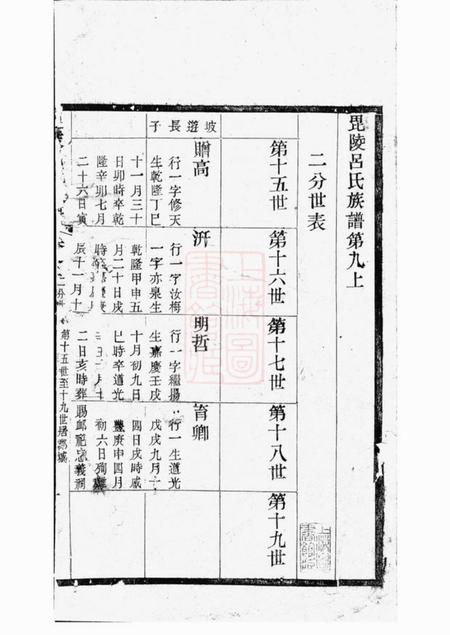 毘陵呂氏族譜第九上
二分世表
第十五世
第十六世
第十七世
第十八世
第十九世
坡遊長子
贈高
行一字修天
生乾隆丁巳
十一月三十
日卯時卒乾
隆辛卯七月
二十六日寅
汧
行一字汝梅
一字亦泉生
乾隆甲申五
月二十日戌
辰十一月十
明哲
行一字繼揚
生嘉慶壬戌
十月初九日
巳時卒道光
二日亥時葬
筲卿
行一生道光
戊戌九月十
四日戌時咸
豐庚申四月
初六日殉
賜卹祀忠義祠
第十五世至十九世居郡城
上海圖書館藏